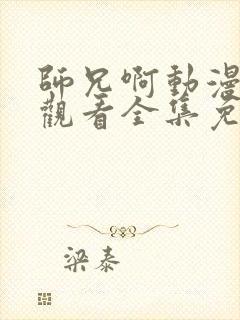 師兄啊動漫
觀看全集免
梁泰